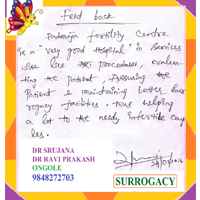 Feed back
Padmaja fertility Centre
is a "very good Hospital" in Services
wise like IVI procedures, evalua-
ting the patient, Assuring the
Patient & maintaining better Surr
rogacy facilities. thus helping
a lot to the needy, infertile coup
les.
DR SRUJANA
DR RAVI PRAKASH
ONGOLE
9848272703
SURROGACY